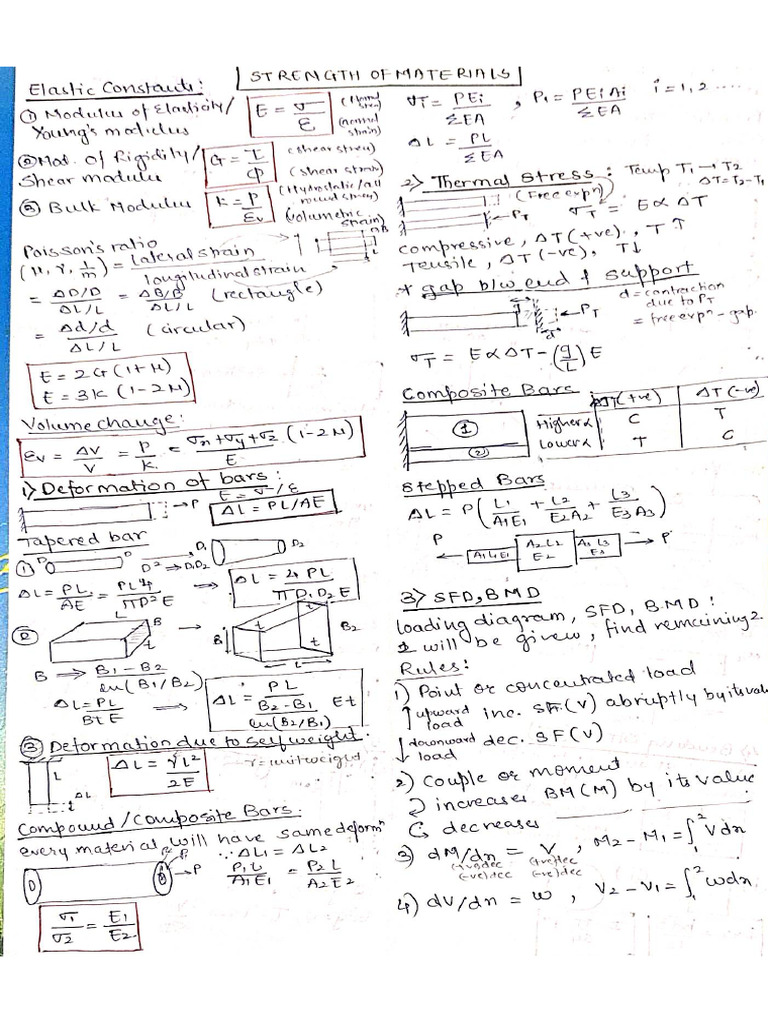 STRENGTH OF MATERIALS
Elastic Constants:
① Modulus of Elasticity/
Young's modulus
E = σ/ε
(normal strain)
② Mod. of Rigidity/
Shear modulus
G = τ/φ
(shear stress)
(shear strain)
③ Bulk Modulus
K = P/εv
(Hydrostatic/all round stress)
(volumetric strain)
Poisson's ratio
(μ, γ, 1/m) = lateral strain / longitudinal strain
= ΔD/D / ΔL/L = ΔB/B / ΔL/L (rectangle)
= Δd/d / ΔL/L (circular)
E = 2G(1+μ)
E = 3K(1-2μ)
Volume change:
εv = ΔV/V = P/K = σx+σy+σz / E (1-2μ)
1) Deformation of bars:
E = σ/ε
→P
ΔL = PL/AE
Tapered bar
① D D D² ⇒ D1D2 D1 D2
ΔL = PL/AE = PL4/πD²E → ΔL = 4PL/πD1D2E
② L B t → B1 t t B2 L
B ⇒ B1-B2 / ln(B1/B2)
ΔL = PL/BtE ⇒ ΔL = PL / B2-B1/ln(B2/B1) Et
③ Deformation due to self weight.
L ΔL
ΔL = γL²/2E
γ = unit weight
Compound/Composite Bars:
every material will have same deformⁿ
→P
∵ ΔL1 = ΔL2
P1L/A1E1 = P2L/A2E2
σ1/σ2 = E1/E2
σT = PEi/ΣEA , P1 = PEiAi/ΣEA i = 1, 2 .....
ΔL = PL/ΣEA
2) Thermal Stress: Temp T1 → T2
ΔT = T2-T1
(Free expⁿ)
← PT
σT = EαΔT
compressive, ΔT(+ve), T↑
Tensile, ΔT(-ve), T↓
* gap b/w end & support
d = contraction due to PT
= free expⁿ - gap.
← PT
σT = EαΔT - (g/L)E
Composite Bars
① ②
ΔT(+ve) ΔT(-ve)
Higher α C T
Lower α T C
Stepped Bars
ΔL = P(L1/A1E1 + L2/E2A2 + L3/E3A3)
P ← A1L1E1 A2L2 E2 A3L3 E3 → P
3) SFD, BMD
loading diagram, SFD, BMD:
1 will be given, find remaining 2
Rules:
1) Point or concentrated load
↑upward load inc. SF(V) abruptly by its va
↓downward load dec. SF(V)
2) Couple or moment
increases BM(M) by its value
decreases
3) dM/dx = V , M2-M1 = ∫₁² Vdx
4) dV/dx = w , V2-V1 = ∫₁² wdx